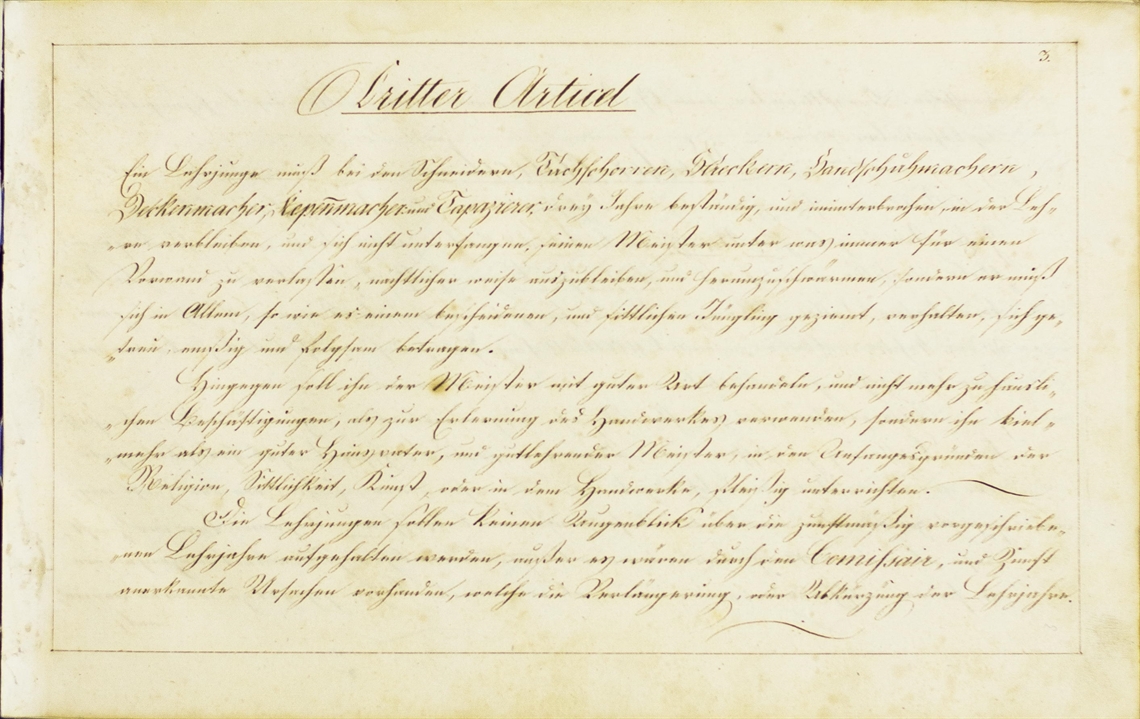 3.
Dritter Articel
Ein Lehrjunge muß bei den Schneidern, Tuchschorren, Säeckern, Handschuhmachern,
Deckenmacher, Kepenmacher und Tapazierer, drey Jahre beständig, und ununterbrochen in der Leh-
-re verbleiben, und sich nicht unterfangen, seinen Meister unter was immer für einen
Vorwand zu verlassen, nachtlicher weise auszubleiben, und herumzuschwärmen, sondern er muß
sich in Allem, so wie es einem bescheidenen, und sittlichen Jüngling geziemt, verhalten, sich ge-
-treu, emsig und folgsam betragen.
Hingegen soll ihn der Meister mit guter Art behandeln, und nicht mehr zu häusli-
-chen Beschäftigungen, als zur Erlernung des Handwerkes verwenden, sondern ihn viel-
-mehr als ein guter Hausvater, und gutlehrender Meister, in den Anfangesgründen der
Religion, Sittlichkeit, Kunst, oder in dem Handwerke, fleißig unterrichten.
Die Lehrjungen sollen keinen Augenblick über die zunftmäßig vorgeschriebe-
-nen Lehrjahre aufgehalten werden, außer es wären durch den Comissair, und Zunft
anerkannte Ursachen vorhanden, welche die Verlängerung, oder Abkürzung der Lehrjahre.